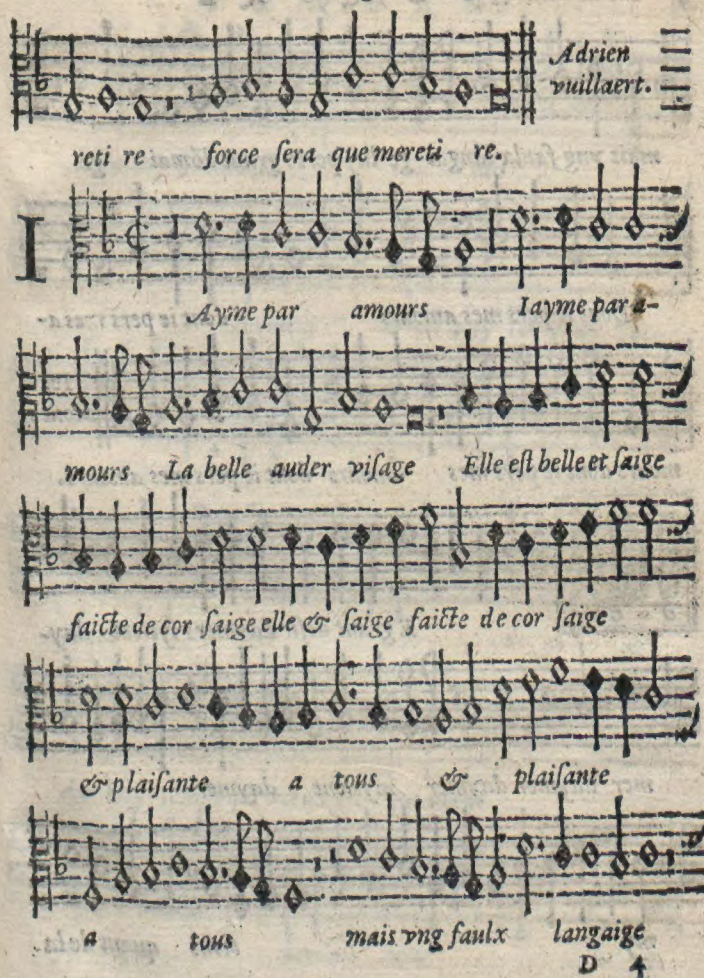 Adrien
vuillaert.
reti re force ſera que mereti re.
I
Ayme par amours Iayme par a-
mours La belle auder viſage Elle eſt belle et ſaige
faicte de cor ſaige elle & ſaige faicte de cor ſaige
& plaiſante a tous & plaiſante
a tous mais vng faulx langaige
D 4